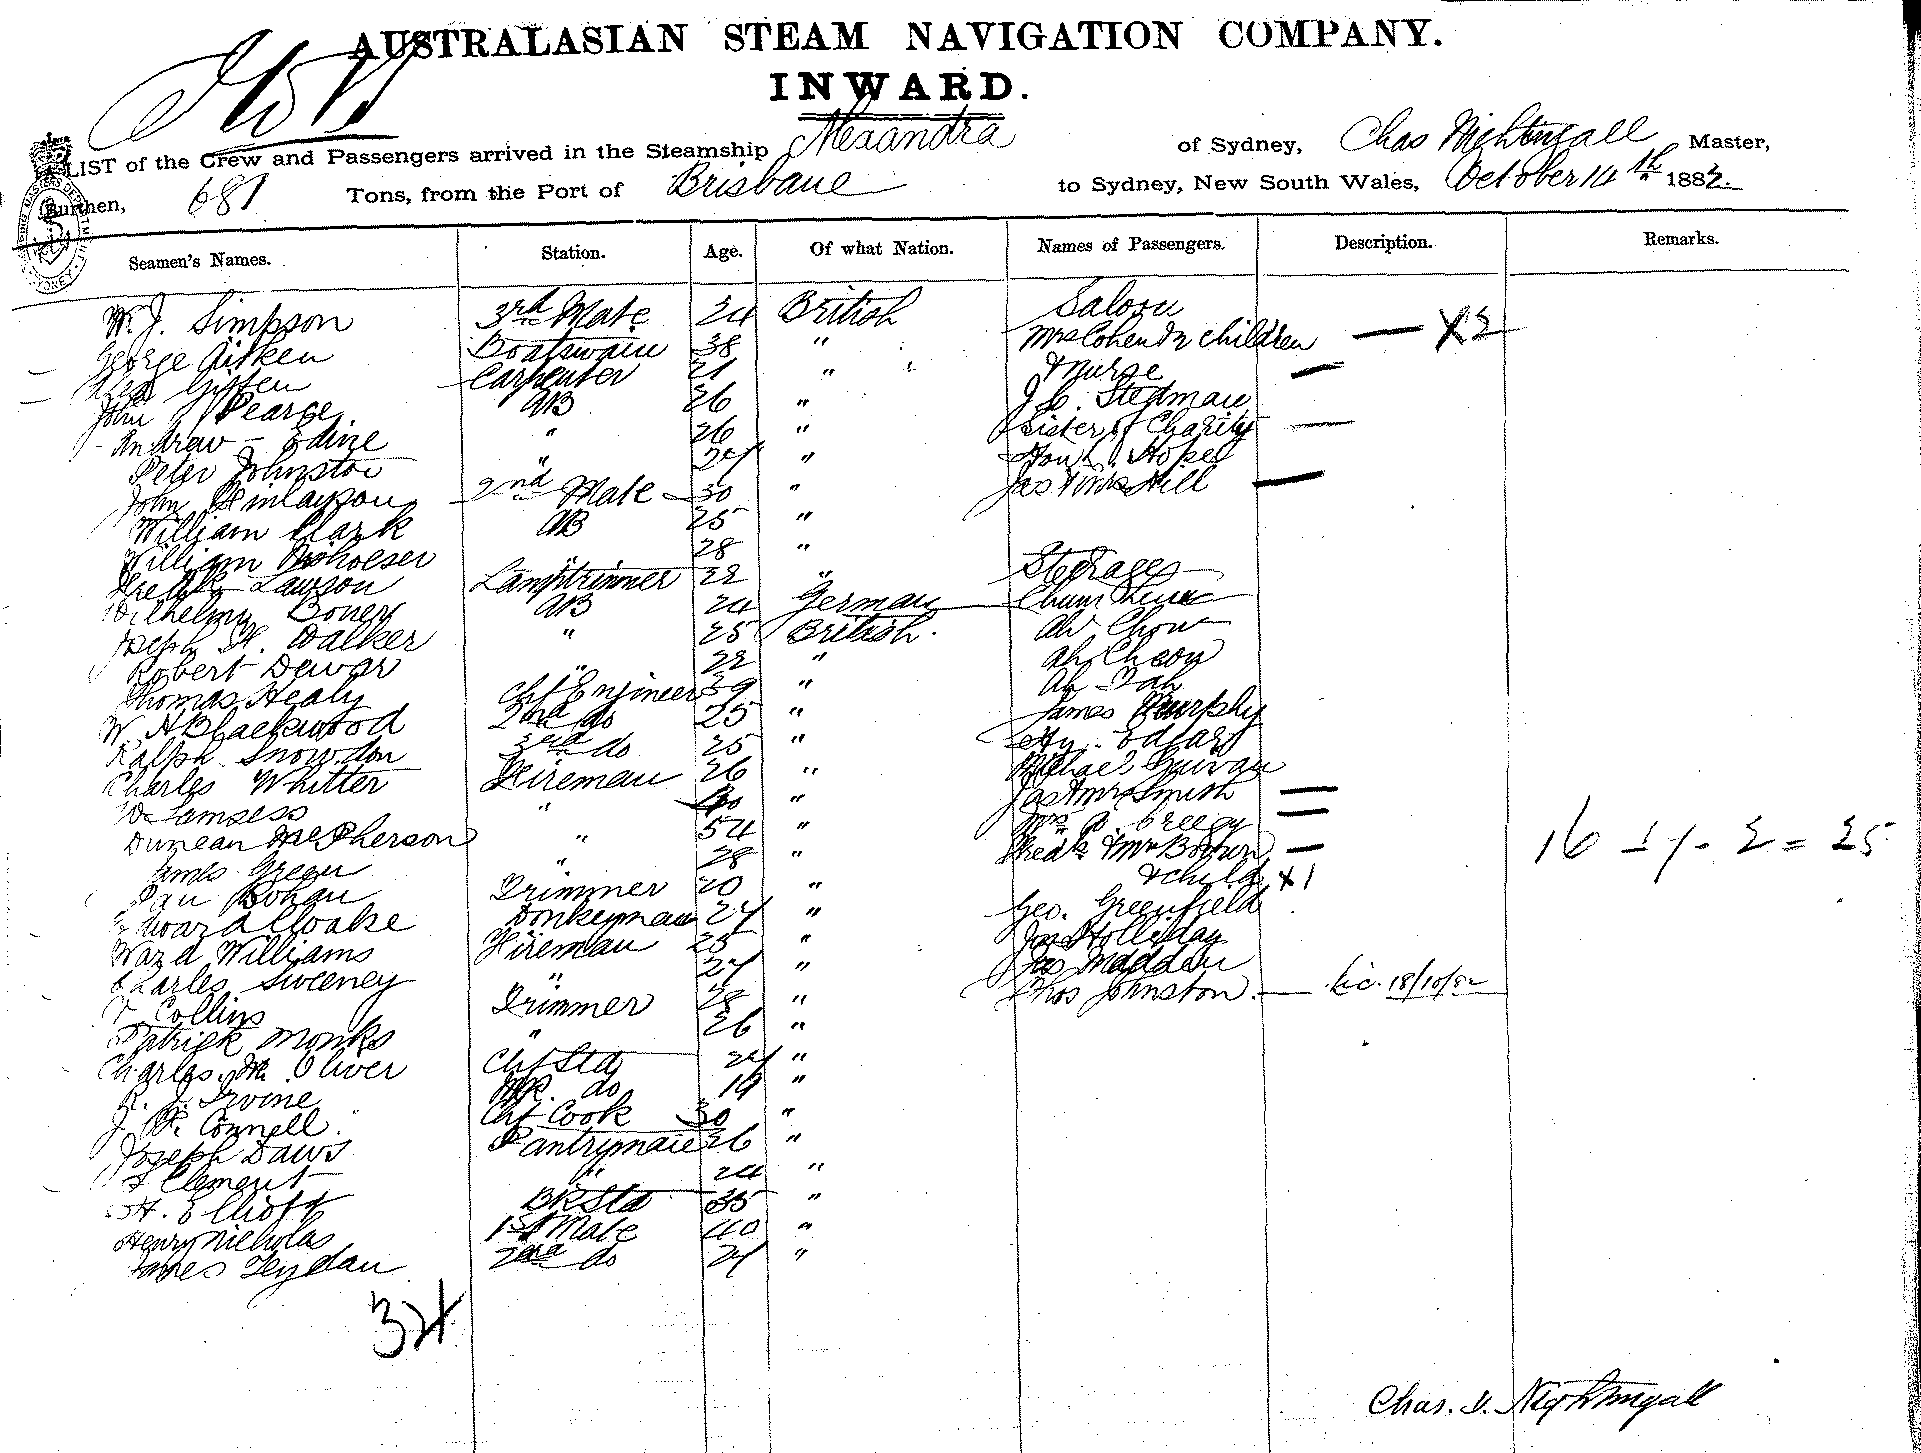 AUSTRALASIAN STEAM NAVIGATION COMPANY.
INWARD.
LIST of the Crew and Passengers arrived in the Steamship Alexandra of Sydney, Chas Nightingall Master,
Burthen, 681 Tons, from the Port of Brisbane to Sydney, New South Wales, October 14th 1882.
Seamen's Names. Station. Age. Of what Nation. Names of Passengers. Description. Remarks.
W. J. Simpson 3rd Mate 24 British Saloon
George Aitken Boatswain 38 " Mrs Cohen & 2 children — X 2
Giffen Carpenter 21 " & Nurse —
John Pearge AB 26 " J. C. Stedman
Andrew Edine " 26 " Sister of Charity —
Peter Johnston " 27 " Hon Hopel
John Finlayson 2nd Mate 30 " Jas & Mrs Hill —
William Clark AB 25 "
William 28 "
Lawson Lamptrimmer 22 " Steerage
Wilhelm Boner AB 24 German Chum
Joseph H. Walker " 25 British. Ah Chow
Robert Dewar " 22 " Ah Cheon
Thomas Healy Chf Engineer 39 " Ah
W. H Blackwood 2nd do 25 " James Murphy
Ralph Snowdon 3rd do 25 " Hy.
Charles Whitter Fireman 26 " Michael
W. " 40 " Jas & Mrs Smith —
Duncan McPherson " 54 " Mrs —
James Green " 28 " & Mrs Brown —
Dan Bohan Trimmer 20 " & child X 1
Edward Cloake Donkeyman 27 " Geo. Greenfield
Ward Williams Fireman 25 " Jas Holliday
Charles Sweeney " 27 " Jas Madden
T. Collins Trimmer 28 " Thos Johnston. — Lic. 18/10/82
Patrick Monks " 26 "
Charles M. Oliver Chf Std 27 "
R. J. Irvine do 19 "
J. W. Connell. Chf Cook 30 "
Joseph Daws Pantryman 26 "
Clement " 24 "
H. Elliott BK Std 35 "
Henry Nicholas 1st Mate 40 "
James Leydan 2nd do 27 "
Chas. D. Nightingall